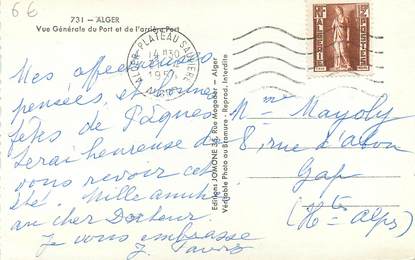 6€
731 - ALGER
Vue Générale du Port et de l'arrière Port
ALGER-PLATEAU SAULIÈRE
14 H30
195
ALGÉRIE
POSTES
Mes affectueuses
pensées, et bonnes
fêtes de Pâques
Serai heureuse de
vous revoir cet
été. Mille amitiés
au cher Docteur.
Je vous embrasse
Editions JOMONE 35, Rue Mogador - Alger
Véritable Photo au Bromure - Reprod. Interdite
Mme Mayoly
8, rue d'
Gap
(Htes Alpes)